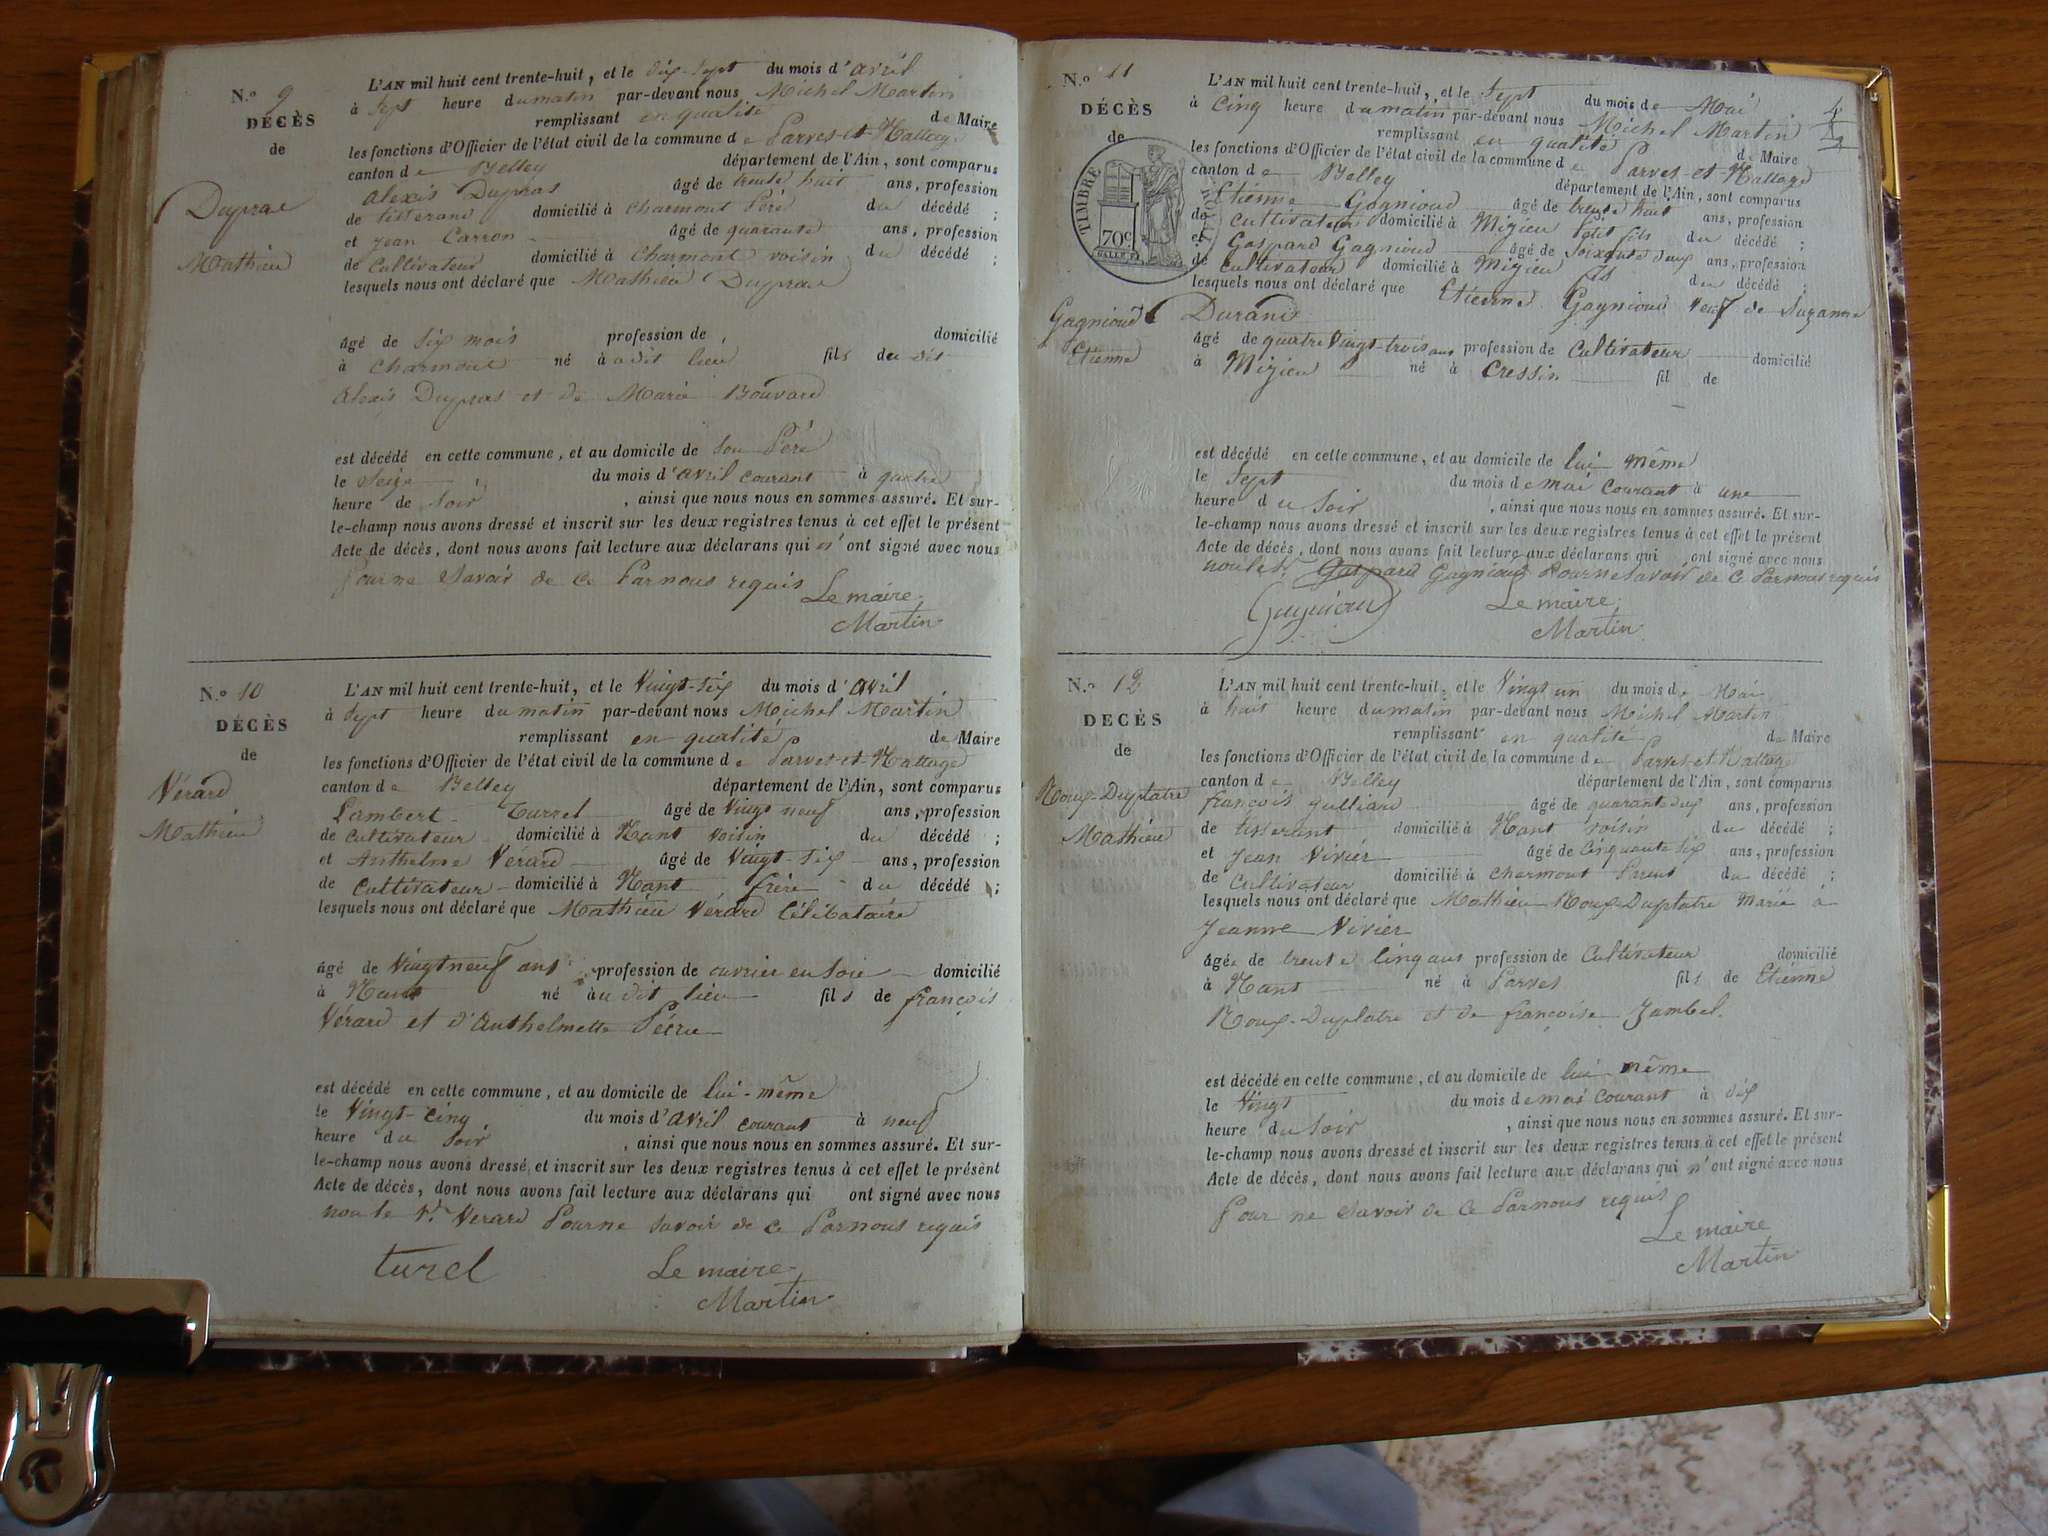 N.º 9
DÉCÈS
de
Dupras
Mathieu
L'AN mil huit cent trente-huit, et le dix-sept du mois d'avril
à sept heure du matin par-devant nous Michel Martin
remplissant en qualité de Maire
les fonctions d'Officier de l'état civil de la commune de Parves-et-Nattage
canton de Belley département de l'Ain, sont comparus
Alexis Dupras âgé de trente huit ans, profession
de tisserand domicilié à Charmont Père du décédé ;
et Jean Carron âgé de quarante ans, profession
de Cultivateur domicilié à Charmont voisin du décédé ;
lesquels nous ont déclaré que Mathieu Dupras
âgé de six mois profession de domicilié
à Charmont né à udit lieu fils du dit
Alexis Dupras et de Marie Bouvard
est décédé en cette commune, et au domicile de son Père
le seize du mois d'avril courant à quatre
heure de soir, ainsi que nous nous en sommes assuré. Et sur-
le-champ nous avons dressé et inscrit sur les deux registres tenus à cet effet le présent
Acte de décès, dont nous avons fait lecture aux déclarans qui n'ont signé avec nous
Pour ne savoir de ce Par nous requis
Le maire
Martin
N.º 10
DÉCÈS
de
Vérard
Mathieu
L'AN mil huit cent trente-huit, et le Vingt-six du mois d'avril
à sept heure du matin par-devant nous Michel Martin
remplissant en qualité de Maire
les fonctions d'Officier de l'état civil de la commune de Parves-et-Nattage
canton de Belley département de l'Ain, sont comparus
Lambert Turrel âgé de Vingt neuf ans, profession
de Cultivateur domicilié à Nant voisin du décédé ;
et Anthelme Vérard âgé de Vingt-six ans, profession
de Cultivateur domicilié à Nant frère du décédé ;
lesquels nous ont déclaré que Mathieu Vérard Célibataire
âgé de Vingt neuf ans profession de ouvrier en soie domicilié
à Nant né àu dit lieu fils de françois
Vérard et d'Anthelmette
est décédé en cette commune, et au domicile de lui-même
le Vingt-cinq du mois d'avril courant à neuf
heure du soir, ainsi que nous nous en sommes assuré. Et sur-
le-champ nous avons dressé et inscrit sur les deux registres tenus à cet effet le présent
Acte de décès, dont nous avons fait lecture aux déclarans qui ont signé avec nous
non le Vérard Pour ne savoir de ce Par nous requis
turel
Le maire
Martin
N.º 11
DÉCÈS
de
TIMBRE ROYAL
70c
Gagnioud
Etienne
L'AN mil huit cent trente-huit, et le sept du mois de Mai
à Cinq heure du matin par-devant nous Michel Martin
remplissant en qualité de Maire
les fonctions d'Officier de l'état civil de la commune de Parves-et-Nattage
canton de Belley département de l'Ain, sont comparus
Etienne Gagnioud âgé de trente huit ans, profession
de Cultivateur domicilié à Mizieu Petit fils du décédé ;
et Gaspard Gagnioud âgé de soixante deux ans, profession
de Cultivateur domicilié à Mizieu fils du décédé ;
lesquels nous ont déclaré que Etienne Gagnioud veuf de Suzanne
Durand
âgé de quatre Vingt-trois ans profession de Cultivateur domicilié
à Mizieu né à Cressin fil de
est décédé en cette commune, et au domicile de lui même
le sept du mois de mai Courant à une
heure du soir, ainsi que nous nous en sommes assuré. Et sur-
le-champ nous avons dressé et inscrit sur les deux registres tenus à cet effet le présent
Acte de décès, dont nous avons fait lecture aux déclarans qui ont signé avec nous
Gaspard Gagnioud Pour ne savoir de ce Par nous requis
Gagnioud
Le maire
Martin
N.º 12
DÉCÈS
de
Roux-Duplatre
Mathieu
L'AN mil huit cent trente-huit, et le Vingt un du mois de Mai
à huit heure du matin par-devant nous Michel Martin
remplissant en qualité de Maire
les fonctions d'Officier de l'état civil de la commune de Parves-et-Nattage
canton de Belley département de l'Ain, sont comparus
françois gulliard âgé de quarante deux ans, profession
de tisserant domicilié à Nant voisin du décédé ;
et Jean Vivier âgé de Cinquante six ans, profession
de Cultivateur domicilié à Charmont Parent du décédé ;
lesquels nous ont déclaré que Mathieu Roux-Duplatre Marié à
Jeanne Vivier
âgée de trente Cinq ans profession de Cultivateur domicilié
à Nant né à Parves fils de Etienne
Roux-Duplatre et de françoise Jambel.
est décédé en cette commune, et au domicile de lui même
le Vingt du mois de mai Courant à dix
heure du soir, ainsi que nous nous en sommes assuré. Et sur-
le-champ nous avons dressé et inscrit sur les deux registres tenus à cet effet le présent
Acte de décès, dont nous avons fait lecture aux déclarans qui n'ont signé avec nous
Pour ne savoir de ce Par nous requis
Le maire
Martin